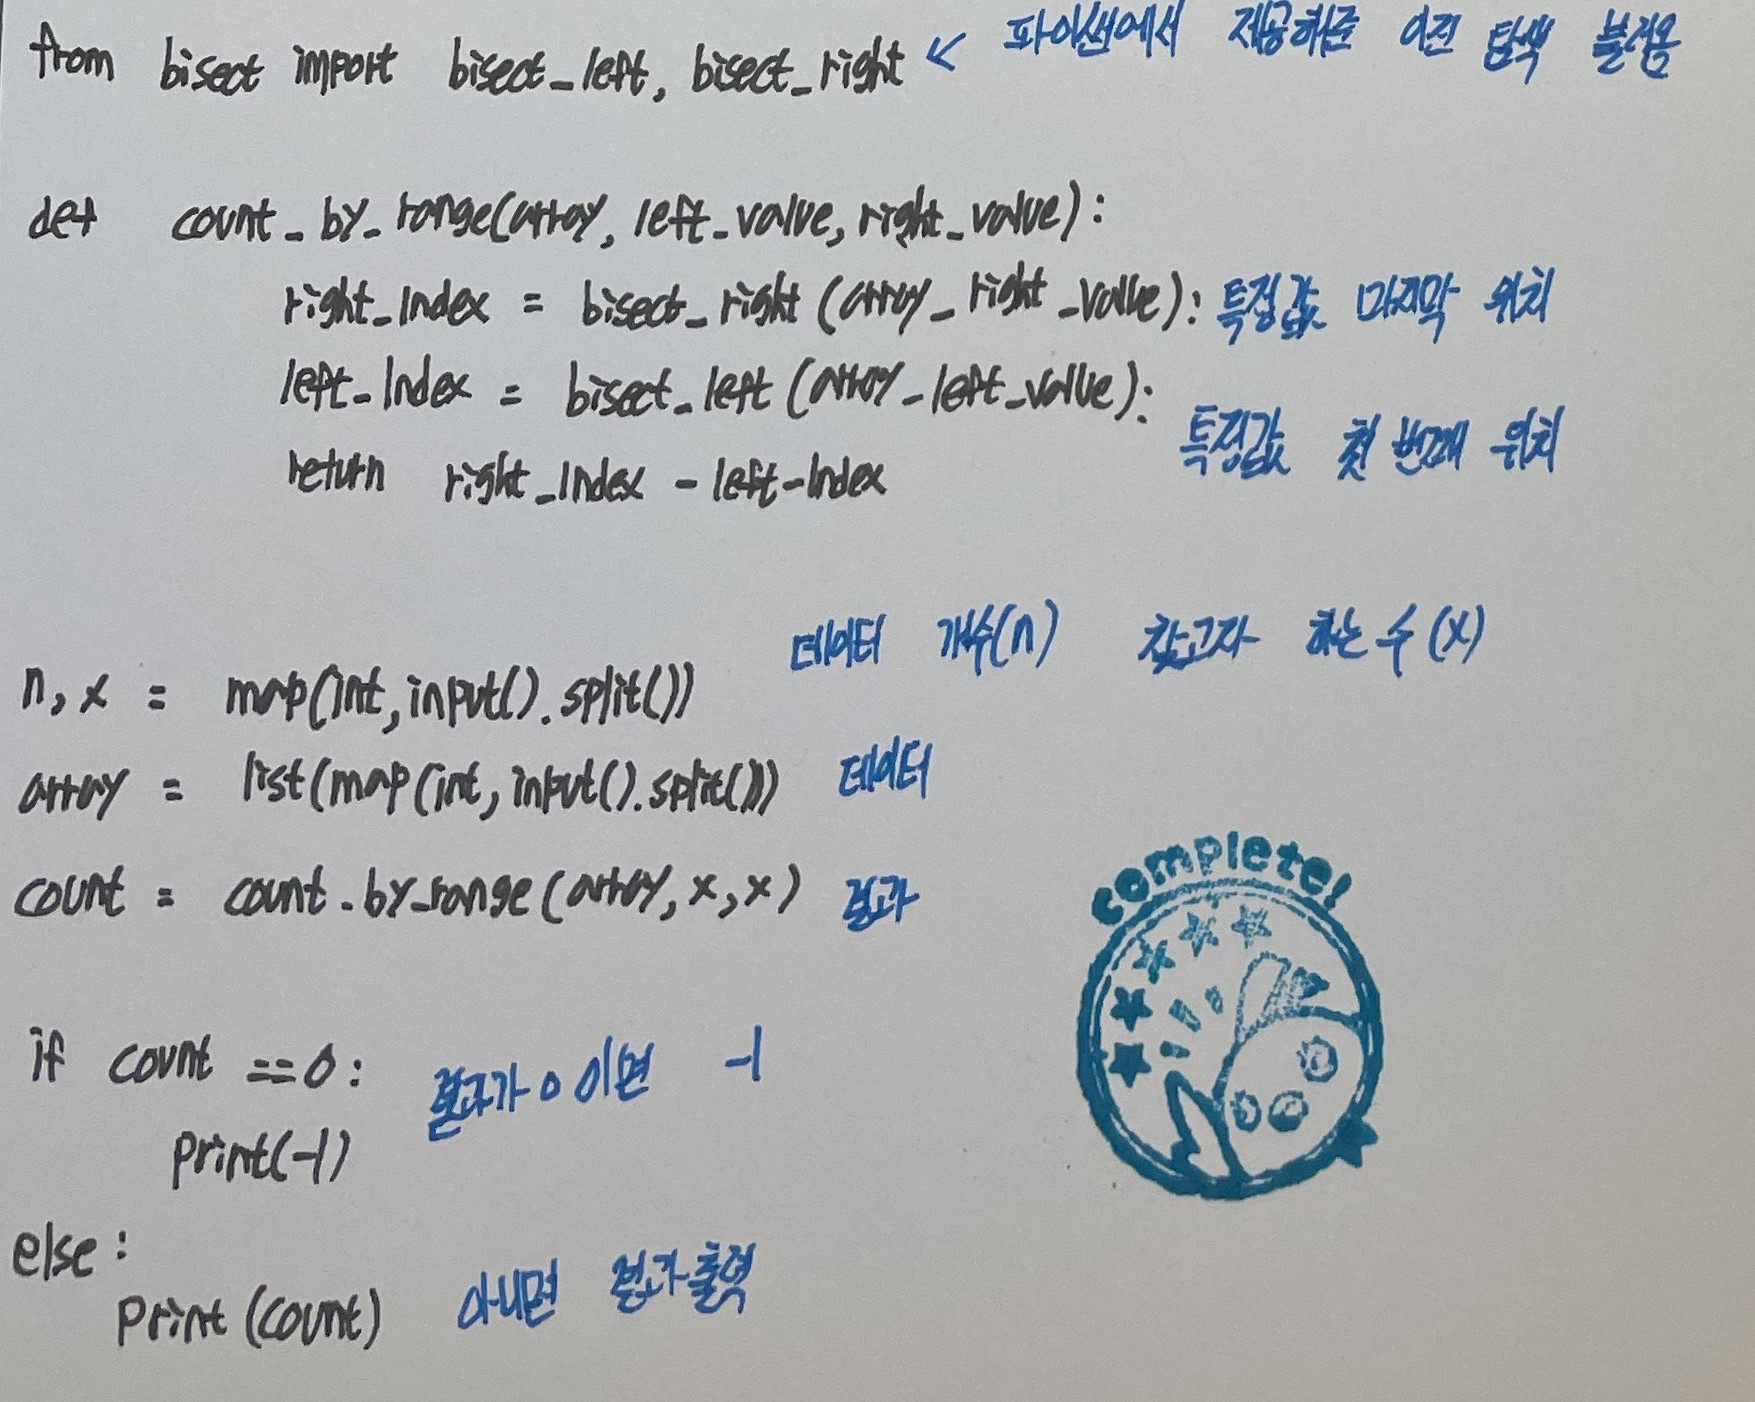 from bisect import bisect_left, bisect_right ← 파이썬에서 제공하는 이진 탐색 불러옴
def count_by_range(array, left_value, right_value):
right_index = bisect_right (array_right_value): 특정값 마지막 위치
left_index = bisect_left (array_left_value):
특정값 첫 번째 위치
return right_index - left-index
데이터 개수(n) 찾고자 하는 수 (x)
n, x = map(int, input().split())
array = list(map(int, input().split())) 데이터
count = count.by_range(array, x, x) 결과
complete!
if count == 0: 결과가 0 이면 -1
print(-1)
else:
print (count) 아니면 결과 출력